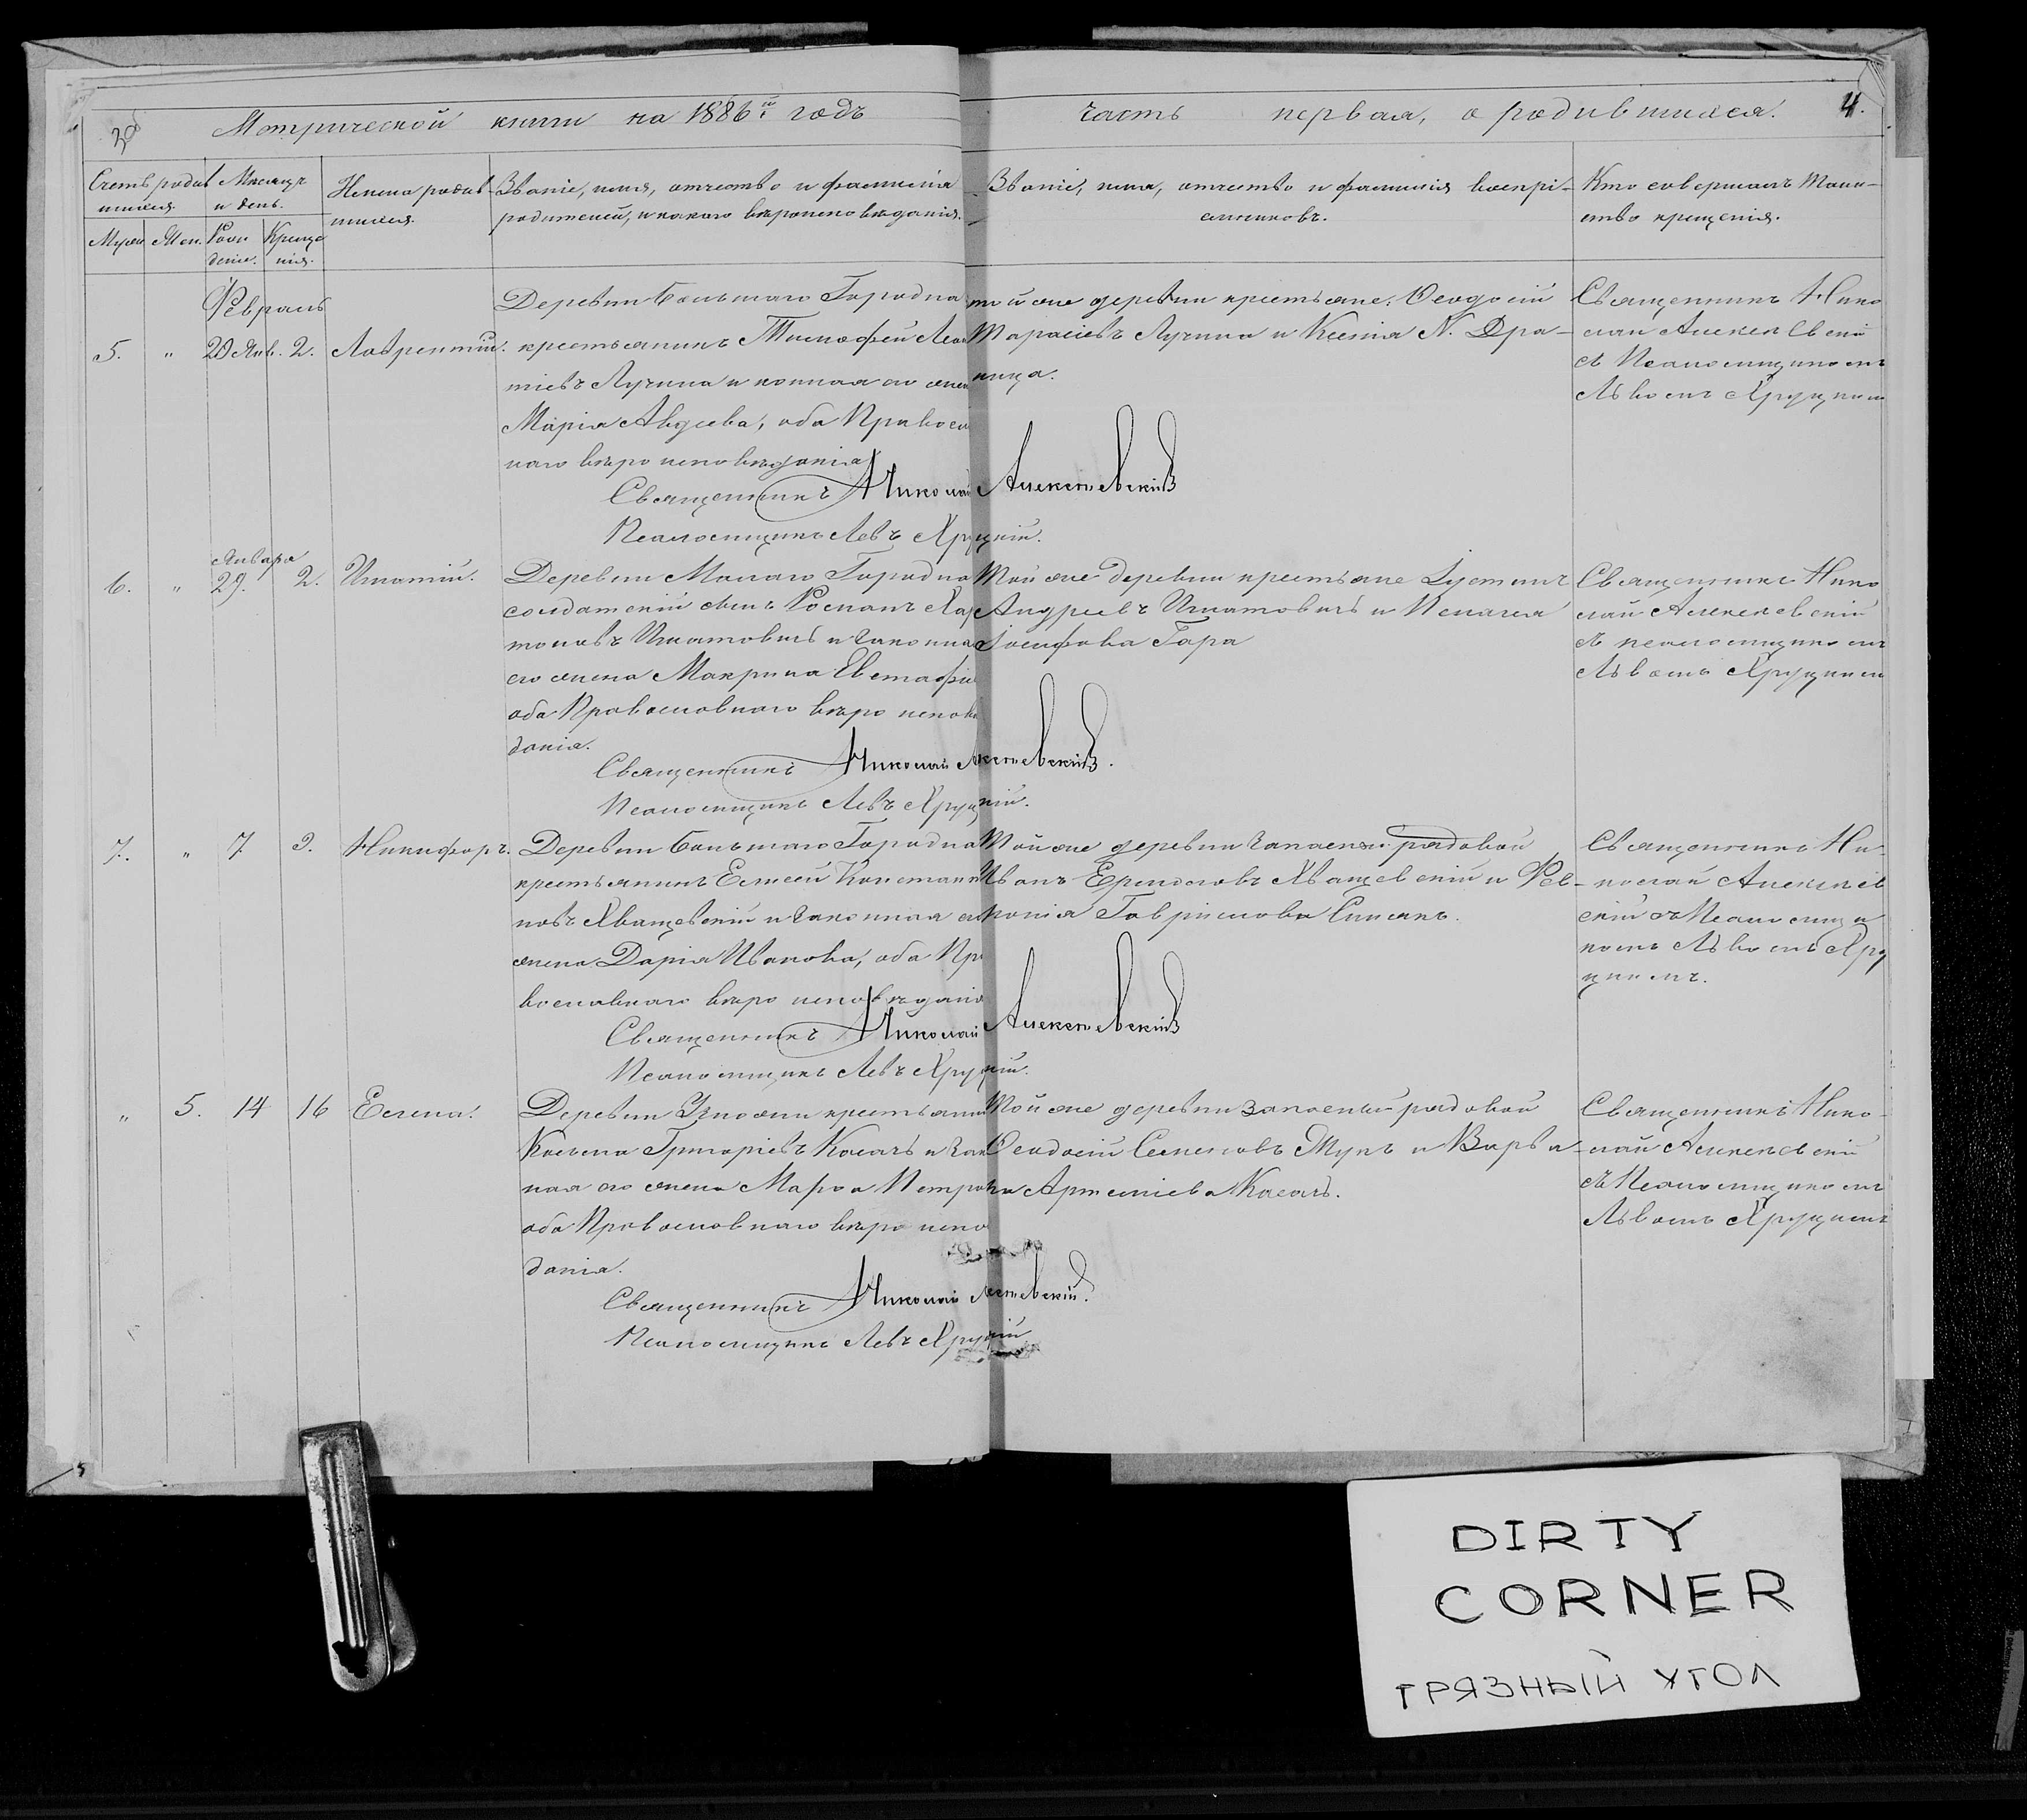 Метрической книги на 1886й годъ
часть первая, о родившихся.
4.
Счетъ родив
шихся.
Мѣсяцъ
и день.
Имена родив-
шихся.
Званіе, имя, отчество и фамилія
родителей, и какого вѣроисповѣданія.
Муж. Жен. Рож
денія. Креще
нія.
Званіе, имя, отчество и фамилія воспрі-
емниковъ.
Кто совершалъ Таин-
ство крещенія.
Февраль
5. " 29 Янв. 2. Лаврентій.
Деревни Большаго Городна
крестьянинъ Тимофей Леон
тіевъ Лучина и конная его жен
Марія Авдѣева, оба Правосл
наго вѣроисповѣданія
Священникъ Николай Алексѣевскій
Псаломщикъ Левъ Хруцкій.
той же деревни крестьяне: Ѳеодосій
Тарасіевъ Лучина и Ксенія N. Дра-
ница.
Священникъ Нико
лай Алексѣевскій
съ Псаломщикомъ
Львомъ Хруцким
6. " Января 29. 2. Игнатій.
Деревни Малаго Городна
солдатскій сынъ Романъ Хар
тоновъ Игнатовичъ и законна
его жена Макрина Евстафі
оба Православнаго вѣроисповѣ
данія.
Священникъ Николай Алексѣевскій.
Псаломщикъ Левъ Хруцкій.
Той же деревни крестьяне Іустинъ
Андреевъ Игнатовичъ и Пелагея
Іосифова Гара
Священникъ Нико
лай Алексѣевскій
съ псаломщикомъ
Львомъ Хруцким
7. " 7 9. Никифоръ.
Деревни Большаго Городна
крестьянинъ Елисей Констант
новъ Хващевскій и законная его
жена Дарія Иванова, оба Пра
вославнаго вѣроисповѣданія
Священникъ Николай Алексѣевскій
Псаломщикъ Левъ Хруцкій.
Той же деревни запасный рядовой
Иванъ Ермолаовъ Хващевскій и Фев-
ронія Гавріилова
Священникъ Ни-
колай Алексѣев
скій съ Псаломщи
комъ Львомъ Хру
цкимъ.
" 5. 14 16 Елена.
Деревни крестьянин
Козьма Григоріевъ Косачъ и зако
ная его жена Марѳа Петрова
оба Православнаго вѣроиспо
данія.
Священникъ Николай Алексѣевскій.
Псаломщикъ Левъ Хруцкій
Той же деревни запасный рядовой
Ѳеодосій Семеновъ Жукъ и Варва-
ра Артеміева Косачъ.
Священникъ Нико-
лай Алексѣевскій
съ Псаломщикомъ
Львомъ Хруцкимъ
DIRTY
CORNER
ГРЯЗНЫЙ УГОЛ